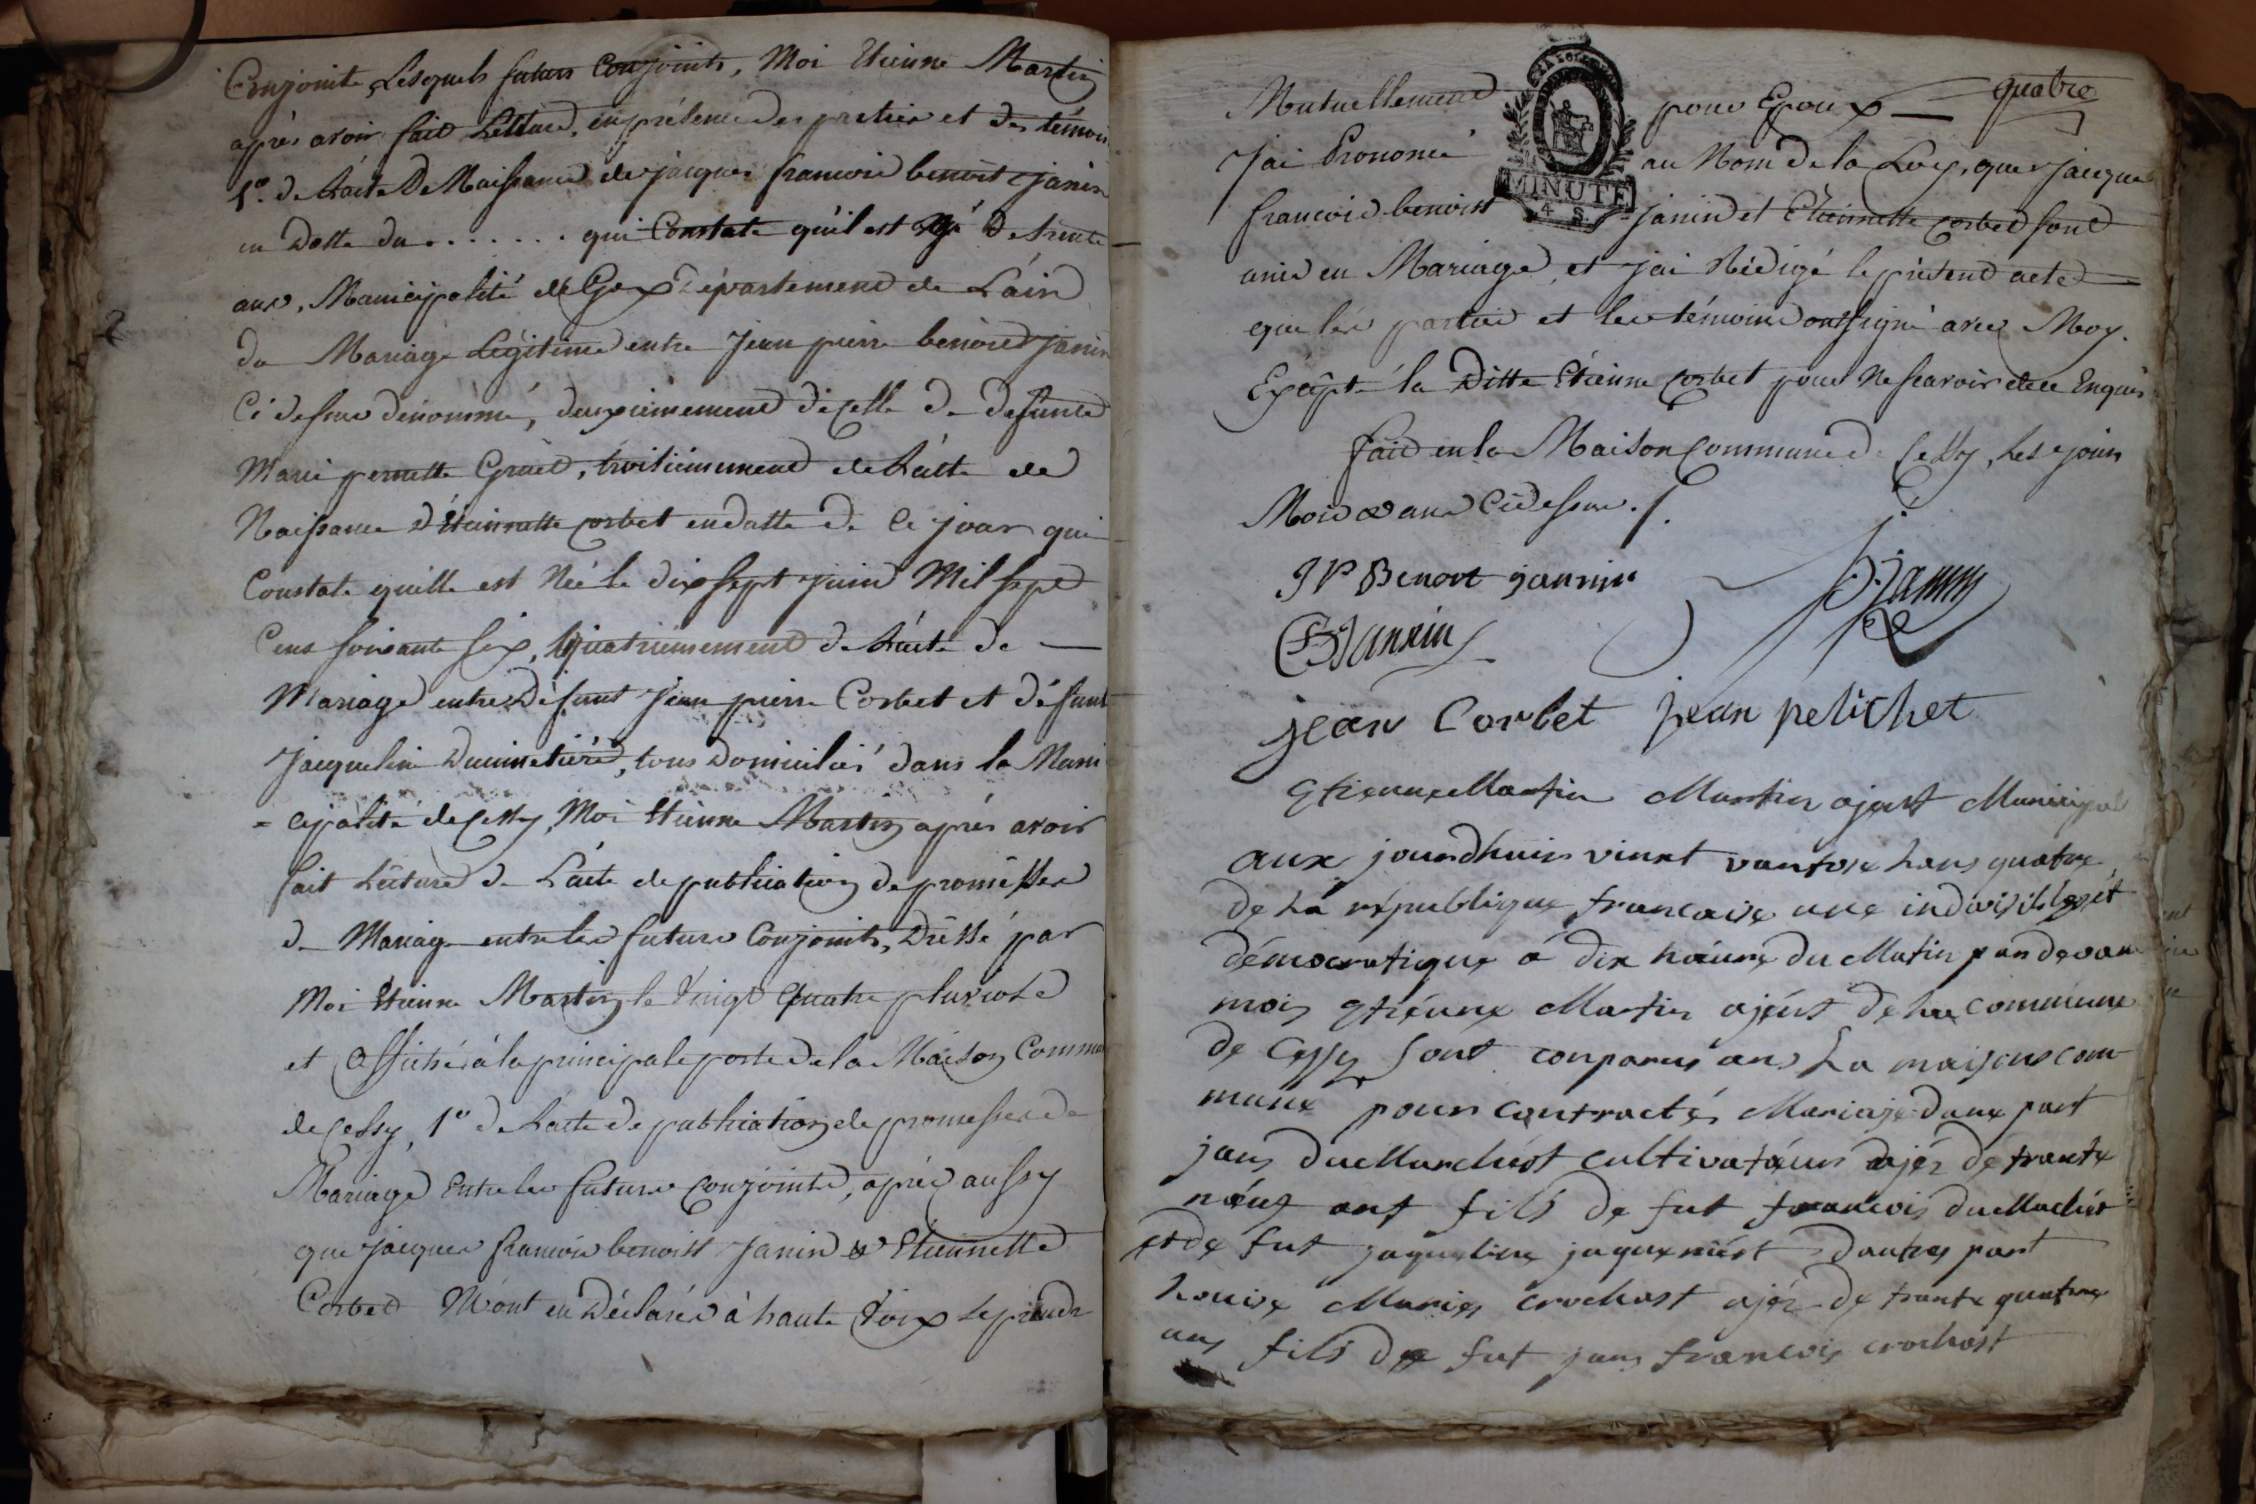 Conjoints, Lesquels futurs Conjoints, Moi Etienne Martin
après avoir fait Lecture, en présence des parties et des témoins
1º. de L'acte De Naissance de jacques francois benoist janin
en Datte du ....... qui Constate qu'il est agé De trente
ans, Municipalité de Gex Département de L'ain
du Mariage Légitime entre Jean pierre benoist Janin
Ci dessus dénommé, deuxiémement d'icelle de defunte
Marie pernette, troisiémement de L'acte de
Naissance d'Etiennette Corbet en datte de Ce jour qui
Constate quelle est Née le dix sept juin Mil sept
Cens soixante six, Quatriémement de L'acte de —
Mariage entre Défunt Jean pierre Corbet et défunte
Jacqueline, tous Domiciliés dans la Muni
= cipalité de Cessy, Moi Etienne Martin après avoir
fait Lecture de L'acte de publication de promesses
de Mariage entre les futurs Conjoints, Dressé par
Moi Etienne Martin le Vingt Quatre pluviose
et affiché à la principale porte de la Maison Commune
de Cessy, 1º de L'acte de publication de promesses de
Mariage Entre les futurs Conjoints, après aussy
que jacques francois benoist Janin et Etiennette
Corbet M'ont eu Déclarés à haute Voix se prendre
quatre
Mutuellement pour Epoux —
J'ai Prononcé au Nom de la Loy, que jacques
francois benoist janin et Etiennette Corbet sont
unis en Mariage, et j'ai Rédigé le présent acte
que les parties et les témoins ont signé avec Moy.
Excepté la Ditte Etienne Corbet pour Ne scavoir de ce Enquis
fait en la Maison Commune de Cessy, Les jour
Mois & an Ci dessus ./.
MINUTE
4 S.
J P Benoit jannin
Janin
Jannin
jean Corbet jean pelichet
Etienne Martin Martin ajent Municipal
aux jourdhuis vint vantose Lans quatre
de La republique francaise une indivisible et
démocratique a dix heure du Matin par devan
mois Etienne Martin ajent de La commune
de Cessy sont conparus ans La maison com-
mune pour contracté Mariaje d'une part
jans duMarchest cultivateur ajéz de trante
neuf ans fils de fut francois du
et de fut jaqueline d'autre part
Louise Marie crochast ajéz de trante quatre
ans fils de fut jans francois crochast